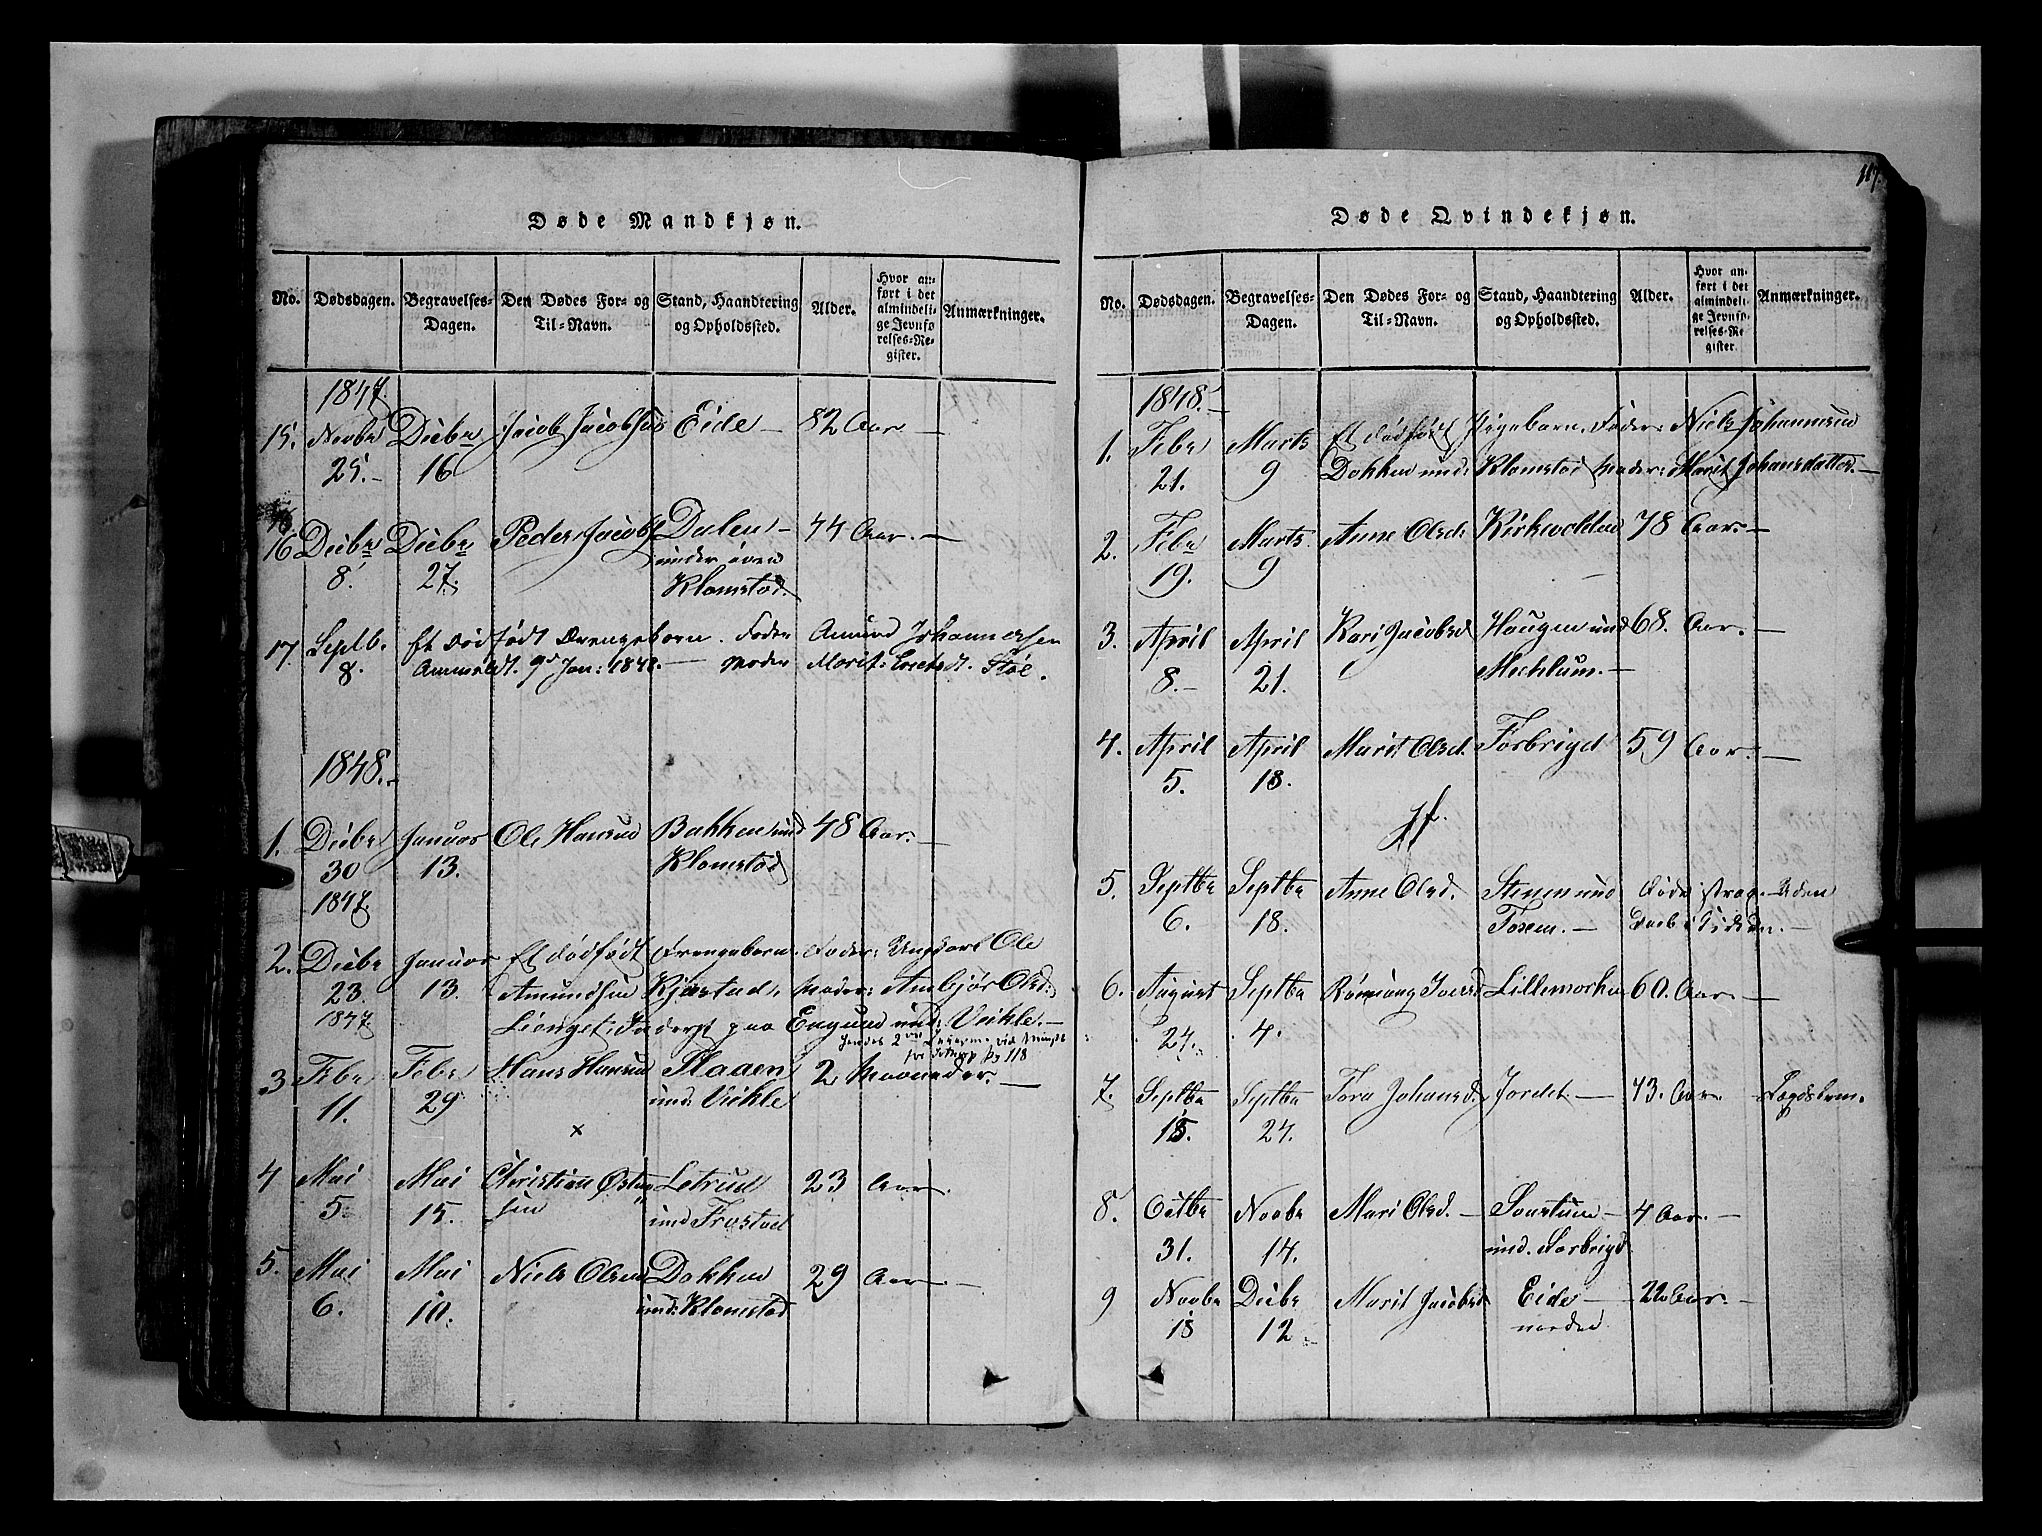 Døde Mandkjøn.
No. Dødsdagen. Begravelses-Dagen. Den Dødes For- og Til-Navn. Stand, Haandtering og Opholdssted. Alder. Hvor anført i det almindelige Jevnførelses-Register. Anmærkninger.
1847.
15. Novbr Decbr Jacob Jacobsen Eide – 82 Aar –
25. – 16
16 Decbr Decbr Peder Jacobs Dalen – 44 Aar. –
8. 27. under øvre
Klomstad.
17. Septb. Et dødfødt Drengebarn. Fader Amund Johannessen
8. Anmeldt. 9d Jan: 1848. – Moder Marit Ericksdt. Støe.
1848. –
1. Decbr Januar Ole Hansen Bakken und 48 Aar. –
30 13. Klomstad
1847.
2. Decbr Januar Et dødfødt Drengebarn. Fader: Ungkarl Ole
23. 13. Amundsen Kjøstad, Moder: Ambjør Olsd.
1847 und: Veikle. –
pg 118
3 Febr Febr Hans Hansen Slaaen 2 Maaneder. –
11. 29 und: Veikle
×
4 Mai Mai Christian Østen Letrud 23 Aar.
5 15. sen und Frostad
5. Mai Mai Niels Olsen Dokken 29 Aar. –
6. und: Klomstad
117.
Døde Qvindekjøn.
No. Dødsdagen. Begravelses-Dagen. Den Dødes For- og Til-Navn. Stand, Haandtering og Opholdssted. Alder. Hvor anført i det almindelige Jevnførelses-Register. Anmærkninger.
1848. –
1. Febr Marts Et dødfødt Pigebarn. Fader: Niels Johannesen
21. 9 Dokken und: Klomstad Moder: Marit Johansdatter. –
2. Febr Marts Anne Olsd: 78 Aar. –
19. 9
3. April April Kari Jacobsd Haugen und 68. Aar. –
8. – 21. Mechlum. –
4. April April Marit Olsd. Forbrigd 59 Aar. –
5. 18.
5. Septbr Septbr Anne Olsd. Stenen und Døde strax. Uden
6. 18. Tosem. – Daab i Kirken. –
6. August Septbr 60. Aar. –
24. 4.
7. Septbr Septbr Tora Johansd. Jordet – 43. Aar. Lægdslem.
15. 24.
8. Octbr Novbr Mari Olsd. – 4 Aar. –
31. 14. und. Forbrigd
9 Novbr Decbr Marit Jacobsd Eide – 22 Aar. –
18 12 – nordre